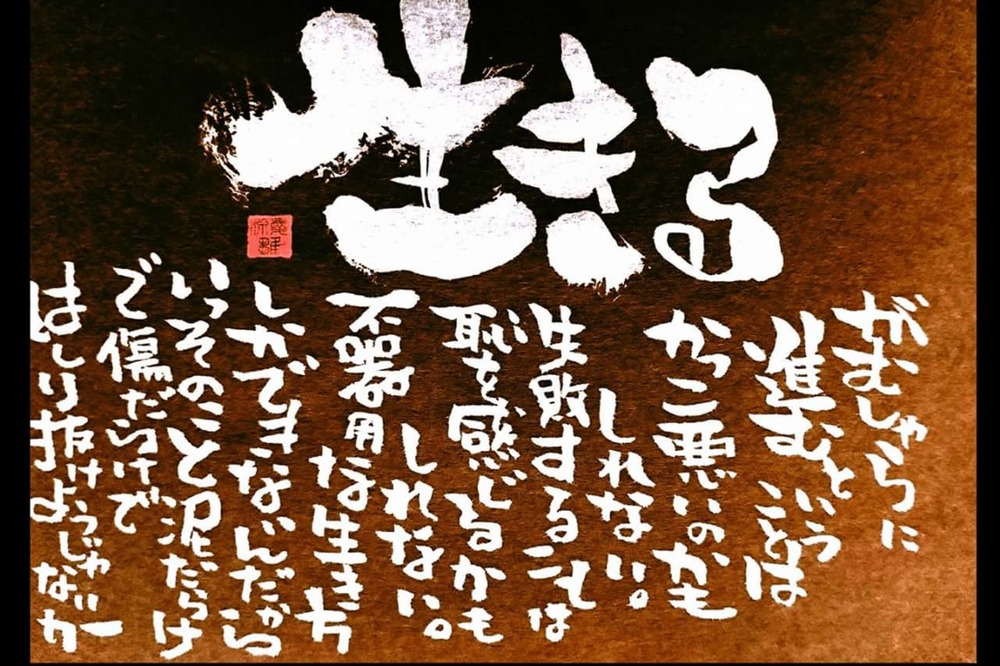 生きる
がむしゃらに
進むということは
かっこ悪いのかも
しれない。
失敗することは
恥を感じるかも
しれない。
不器用な生き方
しかできないんだから
いっそのこと泥だらけ
で傷だらけで
はしり抜けようじゃないか